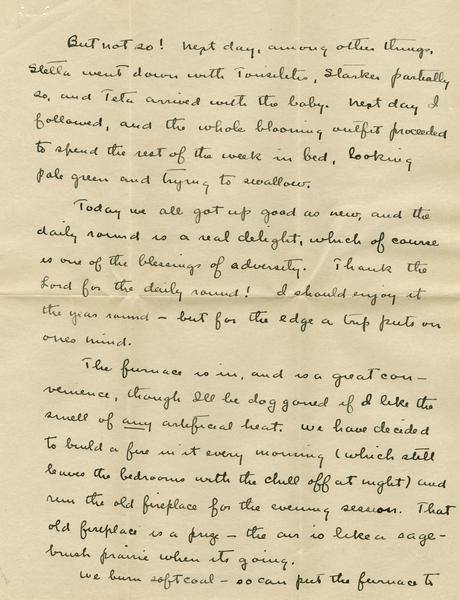 But not so! Next day, among other things,
Stella went down with Tonselitis, Starker partially
so, and Teta arrived with the baby. Next day I
followed, and the whole blooming outfit proceeded
to spend the rest of the week in bed, looking
pale green and trying to swallow.
Today we all got up good as new, and the
daily round is a real delight, which of course
is one of the blessings of adversity. Thank the
Lord for the daily round! I should enjoy it
the year round – but for the edge a trip puts on
ones mind.
The furnace is in, and is a great con-
venience, though Ill be dog goned if I like the
smell of any artificial heat. We have decided
to build a fire in it every morning (which still
leaves the bedrooms with the chill off at night) and
run the old fireplace for the evening session. That
old fireplace is a prize – the air is like a sage-
brush prairie when its going.
We burn soft coal – so can put the furnace to